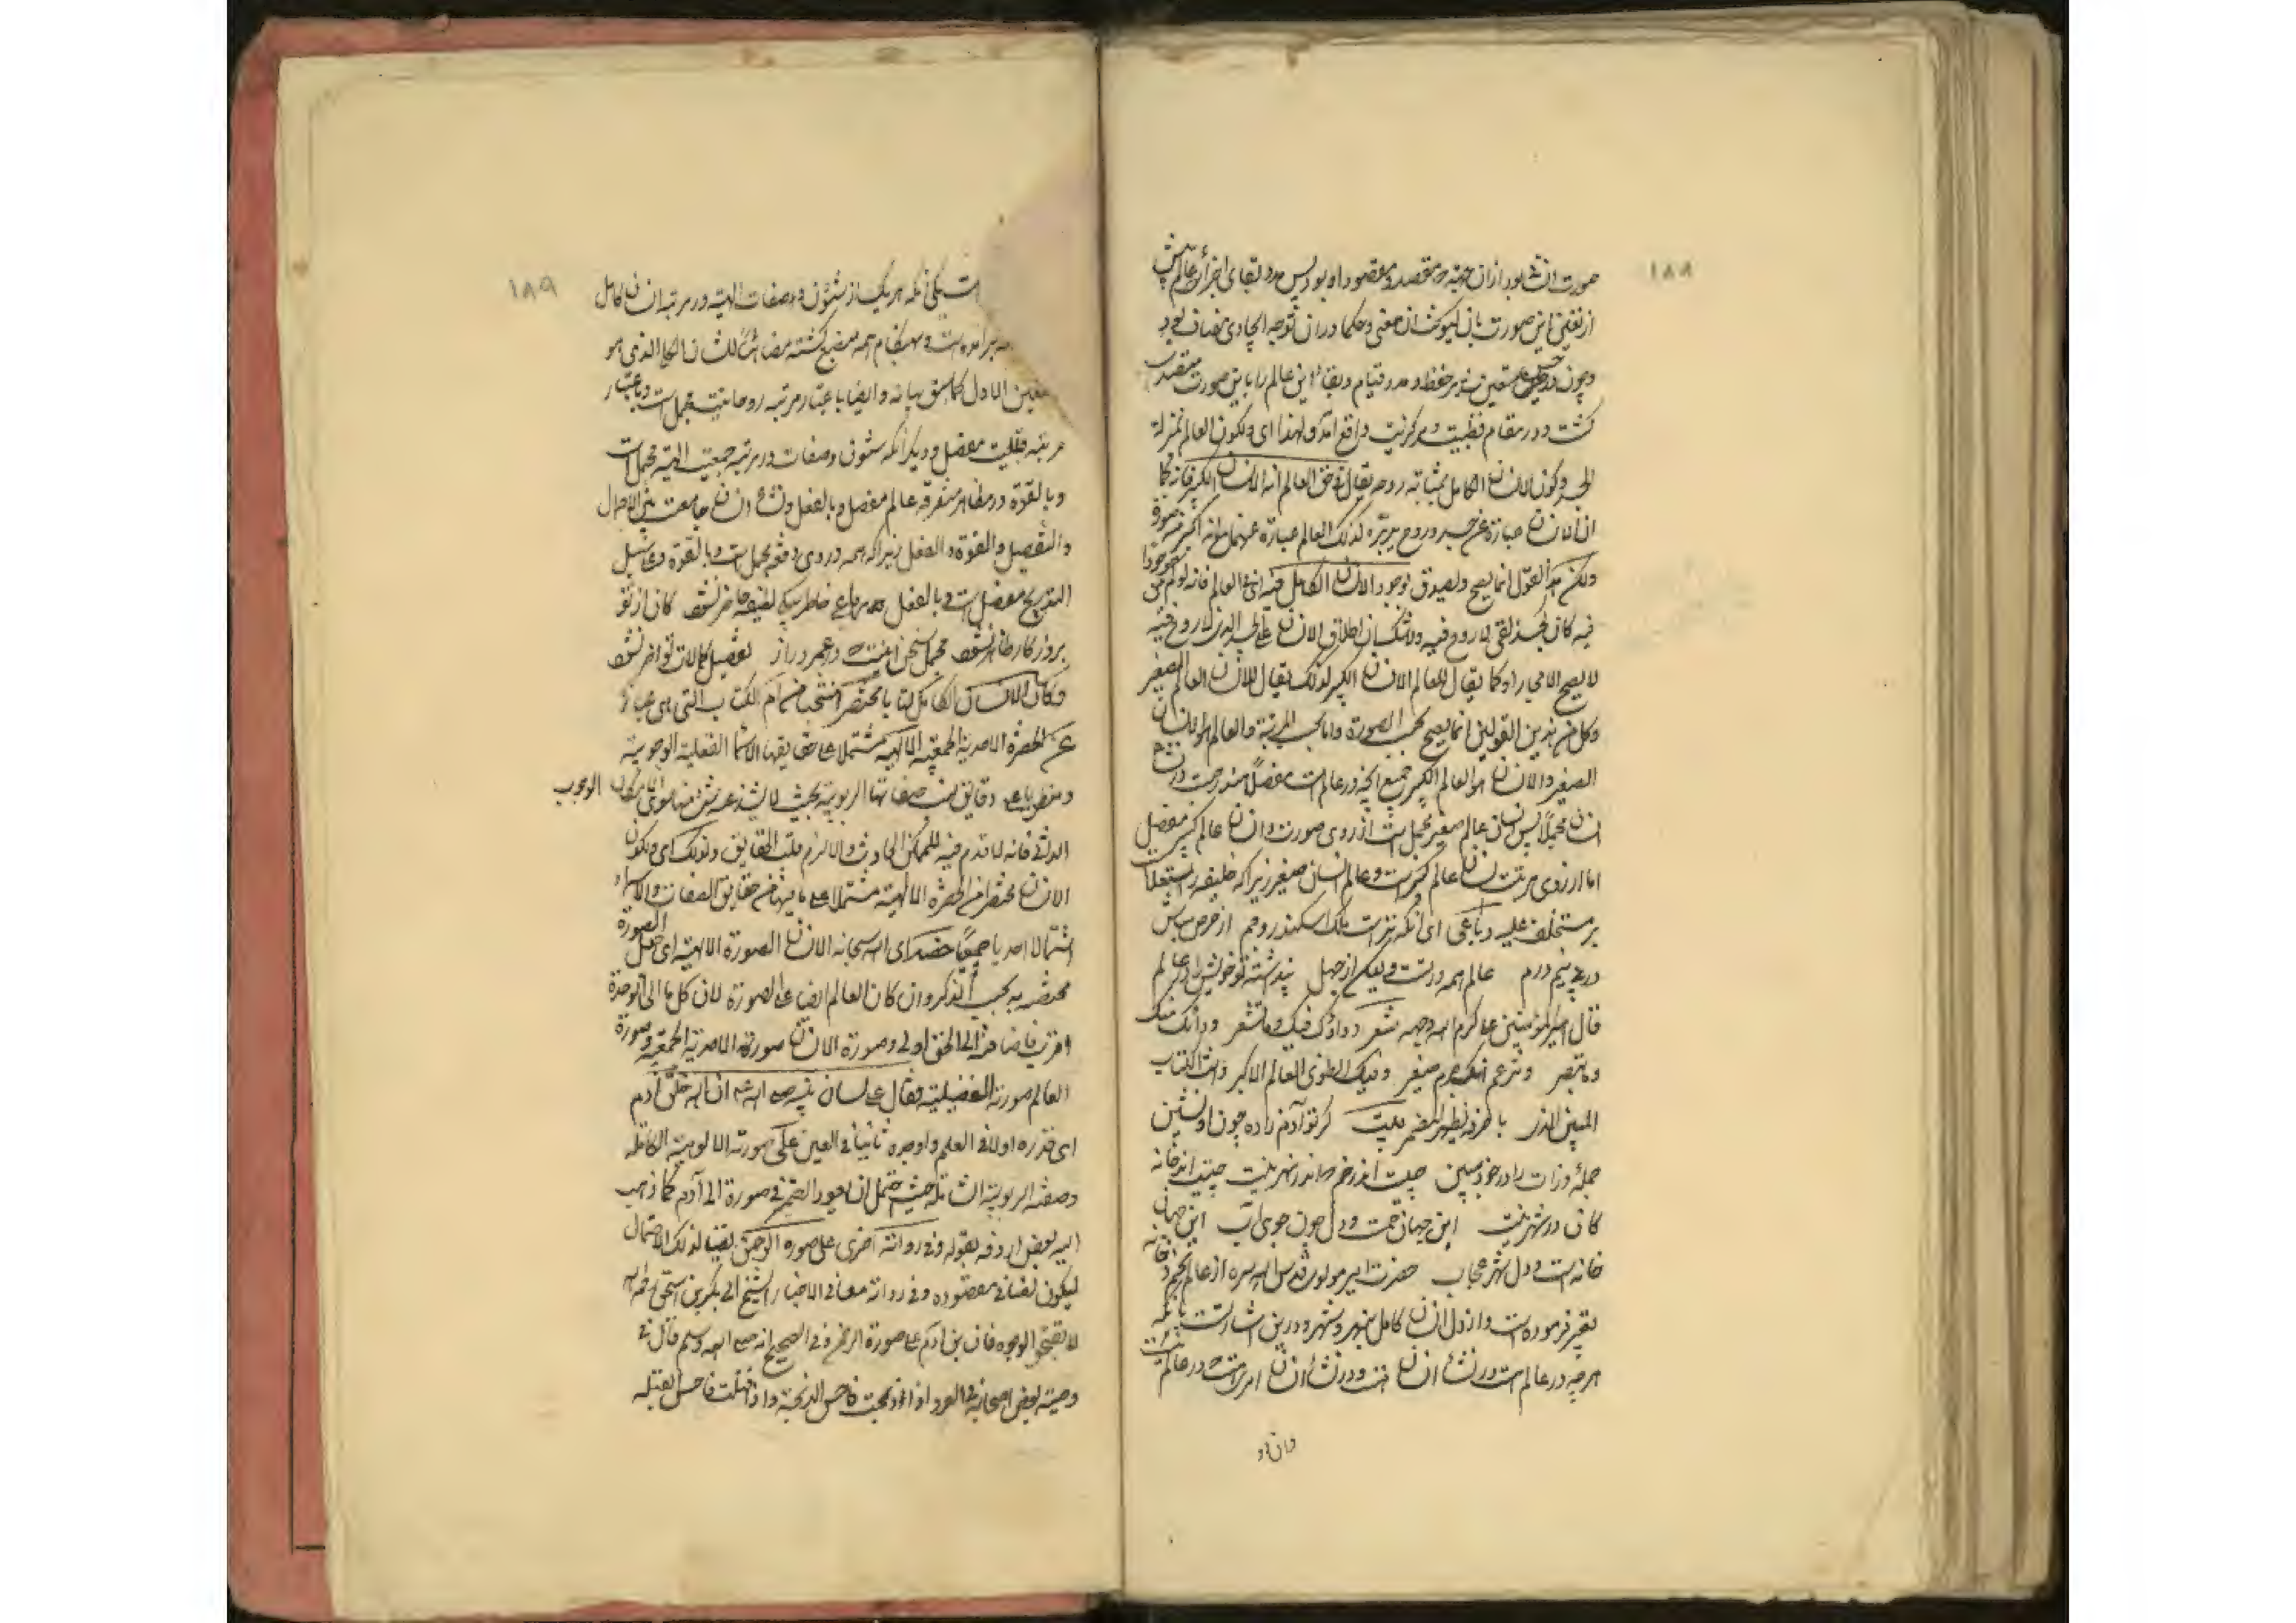 ۱۸۸
صورت انسانی بود از ان جهة که مقصد و مقصود او بود پس مدد بقای اجزای عالم پیش
از تعین این صورت بآن
و چون متعین شد سر حفظ و مدد قیام و بقاء این عالم را باین صورت مقصد
گشت و در مقام قطبیت و مرکزیت واقع آمد و لهذا ای و لکون العالم بمنزلة
الجسد و کون الانسان الکامل بمثابة روحه یقال فی حق العالم انه الانسان الکبیر فانه کما
ان الانسان عبارة عن جسد و روح یدبره کذلک العالم عبارة عنهما مع انه اکبر منه صورة
ولکن هذا القول انما یصح و یصدق بوجود الانسان الکامل فیه ای فی العالم فانه لو لم یکن موجودا
فیه کان کجسد ملقی لا روح فیه ولا شک ان اطلاق الانسان علی الجسد الذی لا روح فیه
لا یصح الا مجازا و کما یقال للعالم الانسان الکبیر کذلک یقال للانسان العالم الصغیر
و کل من هذین القولین انما یصح بحسب الصورة و اما بحسب المرتبة فالعالم هو الانسان
الصغیر و الانسان هو العالم الکبیر جمیع آنچه در عالم است مفصلا مندرجست در نشأه
انسان مجملا پس انسان عالم صغیر مجمل است از روی صورت و انسان عالم کبیر مفصل
اما از روی مرتبت انسان عالم کبیر است و عالم انسان صغیر زیرا که خلیفه را استعلاست
بر مستخلف علیه رباعی ای آنکه تراست ملک اسکندر و جم از حرص مباش
در پی نیم درم عالم همه در تست ولیکن از جهل پنداشته‌ تو خویش را در عالم
قال امیر المؤمنین علی کرم الله وجهه شعر دواؤک فیک و ما تشعر و داؤک منک
و ما تبصر و تزعم انک جرم صغیر و فیک انطوی العالم الاکبر و انت الکتاب
المبین الذی باحرفه یظهر المضمر بیت گر تو آدم زاده چون او نشین
جملهٔ ذرات را در خود ببین چیست اندر خم که اندر نهر نیست چیست اندر خانه
کان در شهر نیست این جهان خمست و دل چون جوی آب این جهان
خانه است و دل شهر عجاب حضرت مولوی قدس الله سره از عالم بخم و خانه
تعبیر فرموده است و از دل انسان کامل بنهر و شهر و درین اشارتست بآنکه
هرچه در عالم است در نشأه انسان هست و در نشأه انسان امریست که در عالم نیست
۱۸۹
است یکی آنکه هر یک از شئون و صفات الهیه در مرتبهٔ انسان کامل
برآمده است و همه منصبغ گشته الذی هو
التعین الاول کما سبق بیانه و ایضا باعتبار مرتبه روحانیت مجمل است و باعتبار
مرتبه قلبیت مفصل و دیگر آنکه شئون و صفات در مرتبه جمعیت الهیه مجمل است
و بالقوة و در مظاهر متفرقه عالم مفصل و بالفعل و نشأه انسان جامعست بین الاجمال
والتفصیل و القوة و الفعل زیرا که همه در وی دفعة مجمل است و بالقوة و علی سبیل
التدریج مفصل است و بالفعل رباعی
بروزگار ظاهر نشود مجمل سخن و عمر دراز تفصیل کمالات تو آخر نشود
و کان الانسان الکامل کتابا مختصرا منتخبا من ام الکتاب التی هی عبارة
عن الحضرة الاحدیة الجمعیة الالهیة مشتملا علی حقایقها الاسما الفعلیة الوجوبیة
و منطویا علی دقایق صفاتها الربوبیة بحیث لا یشذ عنه شیء منها سوی الوجوب
الذاتی فانه لا قدم فیه للممکن الحادث و الا لزم قلب الحقایق و لذلک ای و لکون
الانسان مختصرا من الحضرة الالهیة مشتملا علی ما فیها من حقایق الصفات و الاسماء
اشتمالا احدیا جمعیا خصه ای الله سبحانه الانسان بالصورة الالهیة ای جعل الصورة
مختصة به بحسب الذکر و ان کان العالم ایضا علی الصورة لان کل ما الی الوحدة
اقرب فاضافته الی الحق اولی و صورة الانسان صورته الاحدیة الجمعیة و صورة
العالم صورته التفصیلیة فقال علی لسان نبیه صلی الله علیه ان الله خلق آدم
ای قدره اولا فی العلم و اوجده ثانیا فی العین علی صورته الالوهیة الکاملة
و صفته الربوبیة الشاملة حیث یحتمل ان یعود الضمیر فی صورته الی آدم کما ذهب
الیه بعضهم اردفه بقوله و فی روایة اخری علی صورة الرحمن نفیا لذلک الاحتمال
لیکون نصا فی مقصوده و فی روایة معانی الاخبار للشیخ ابی بکر بن اسحق
لا تقبحوا الوجوه فان ابن آدم علی صورة الرحمن و فی الصحیح انه صلی الله علیه وسلم قال فی
وصیته بعض اصحابه فی الغزو اذا ذبحت فاحسن الذبحة و اذا قتلت فاحسن القتلة